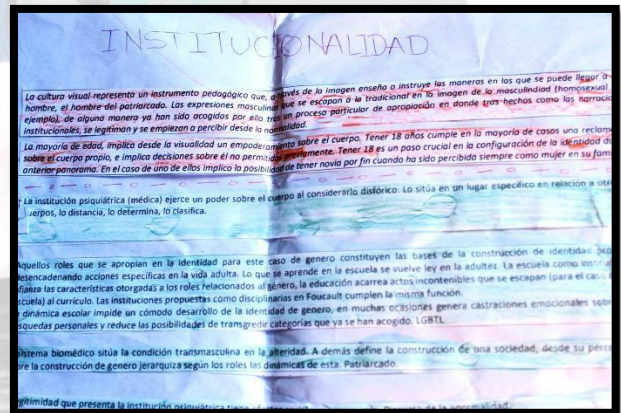 INSTITUCIONALIDAD
La cultura visual representa un instrumento pedagógico que, a través de la imagen enseña o instruye las maneras en las que se puede llegar a
hombre, el hombre del patriarcado. Las expresiones masculinas que se escapan a la tradicional en la imagen de la masculinidad (homosexual
ejemplo), de alguna manera ya han sido acogidos por ello tras un proceso particular de apropiación en donde tras hechos como las
institucionales, se legitiman y se empiezan a percibir desde la normalidad.
La mayoría de edad, implica desde la visualidad un empoderamiento sobre el cuerpo. Tener 18 años cumple en la mayoría de casos una
sobre el cuerpo propio, e implica decisiones sobre él no permitidas previamente. Tener 18 es un paso crucial en la configuración de la identidad
anterior panorama. En el caso de uno de ellos implico la posibilidad de tener novia por fin cuando ha sido percibida siempre como mujer en su
La institución psiquiátrica (médica) ejerce un poder sobre el cuerpo al considerarlo disfórico. Lo sitúa en un lugar especifico en relación a
cuerpos, lo distancia, lo determina, lo clasifica.
Aquellos roles que se apropian en la identidad para este caso de genero constituyen las bases de la construcción de identidad
desencadenando acciones especificas en la vida adulta. Lo que se aprende en la escuela se vuelve ley en la adultez. La escuela como
las características otorgadas a los roles relacionados al género, la educación acarrea actos incontenibles que se escapan (para el caso
escuela) al currículo. Las instituciones propuestas como disciplinarias en Foucault cumplen la misma función.
dinámica escolar impide un cómodo desarrollo de la identidad de genero, en muchas ocasiones genera castraciones emocionales
personales y reduce las posibilidades de transgredir categorías que ya se han acogido. LGBTI.
sistema biomédico sitúa la condición transmasculina en la alteridad. A demás define la construcción de una sociedad, desde su
la construcción de genero jerarquiza según los roles las dinámicas de esta. Patriarcado.
que presenta la institución psiquiátrica tiene